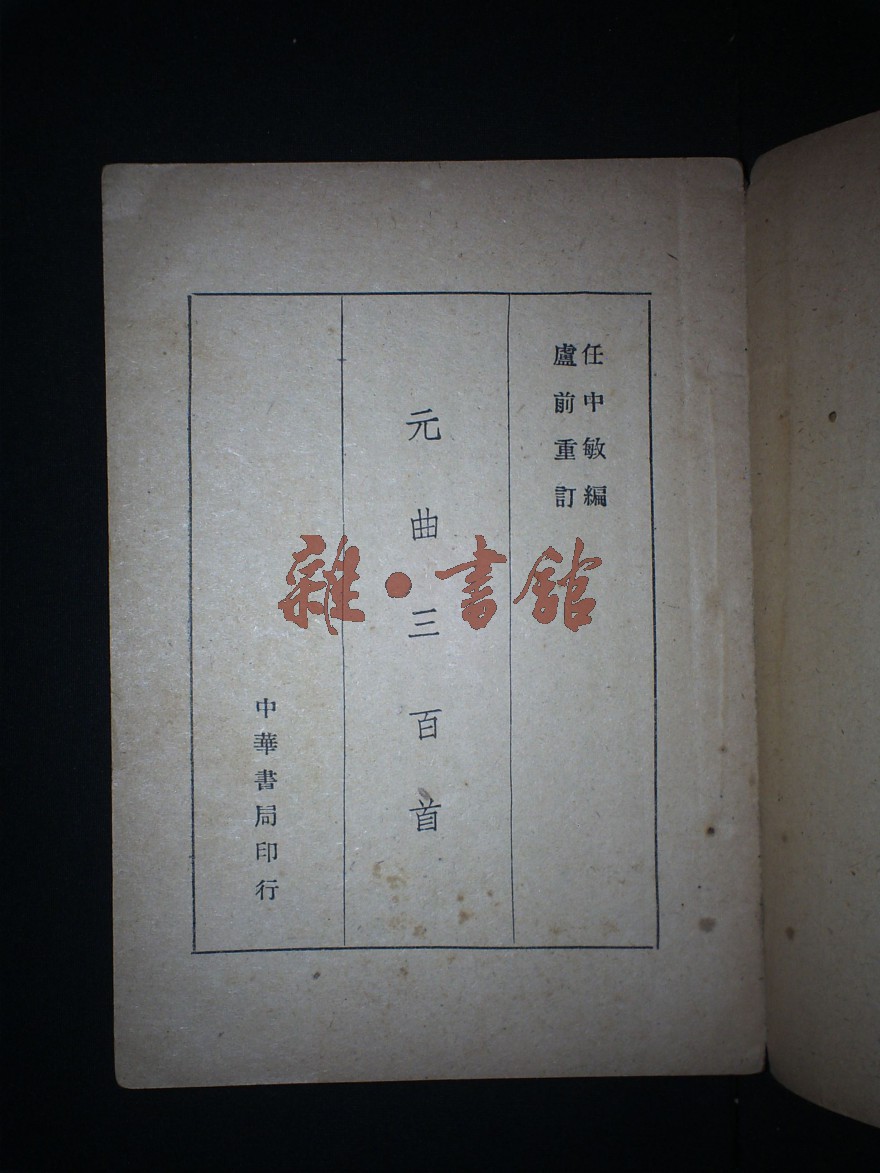 任中敏編
盧前重訂
元曲三百首
中華書局印行
雜·書館